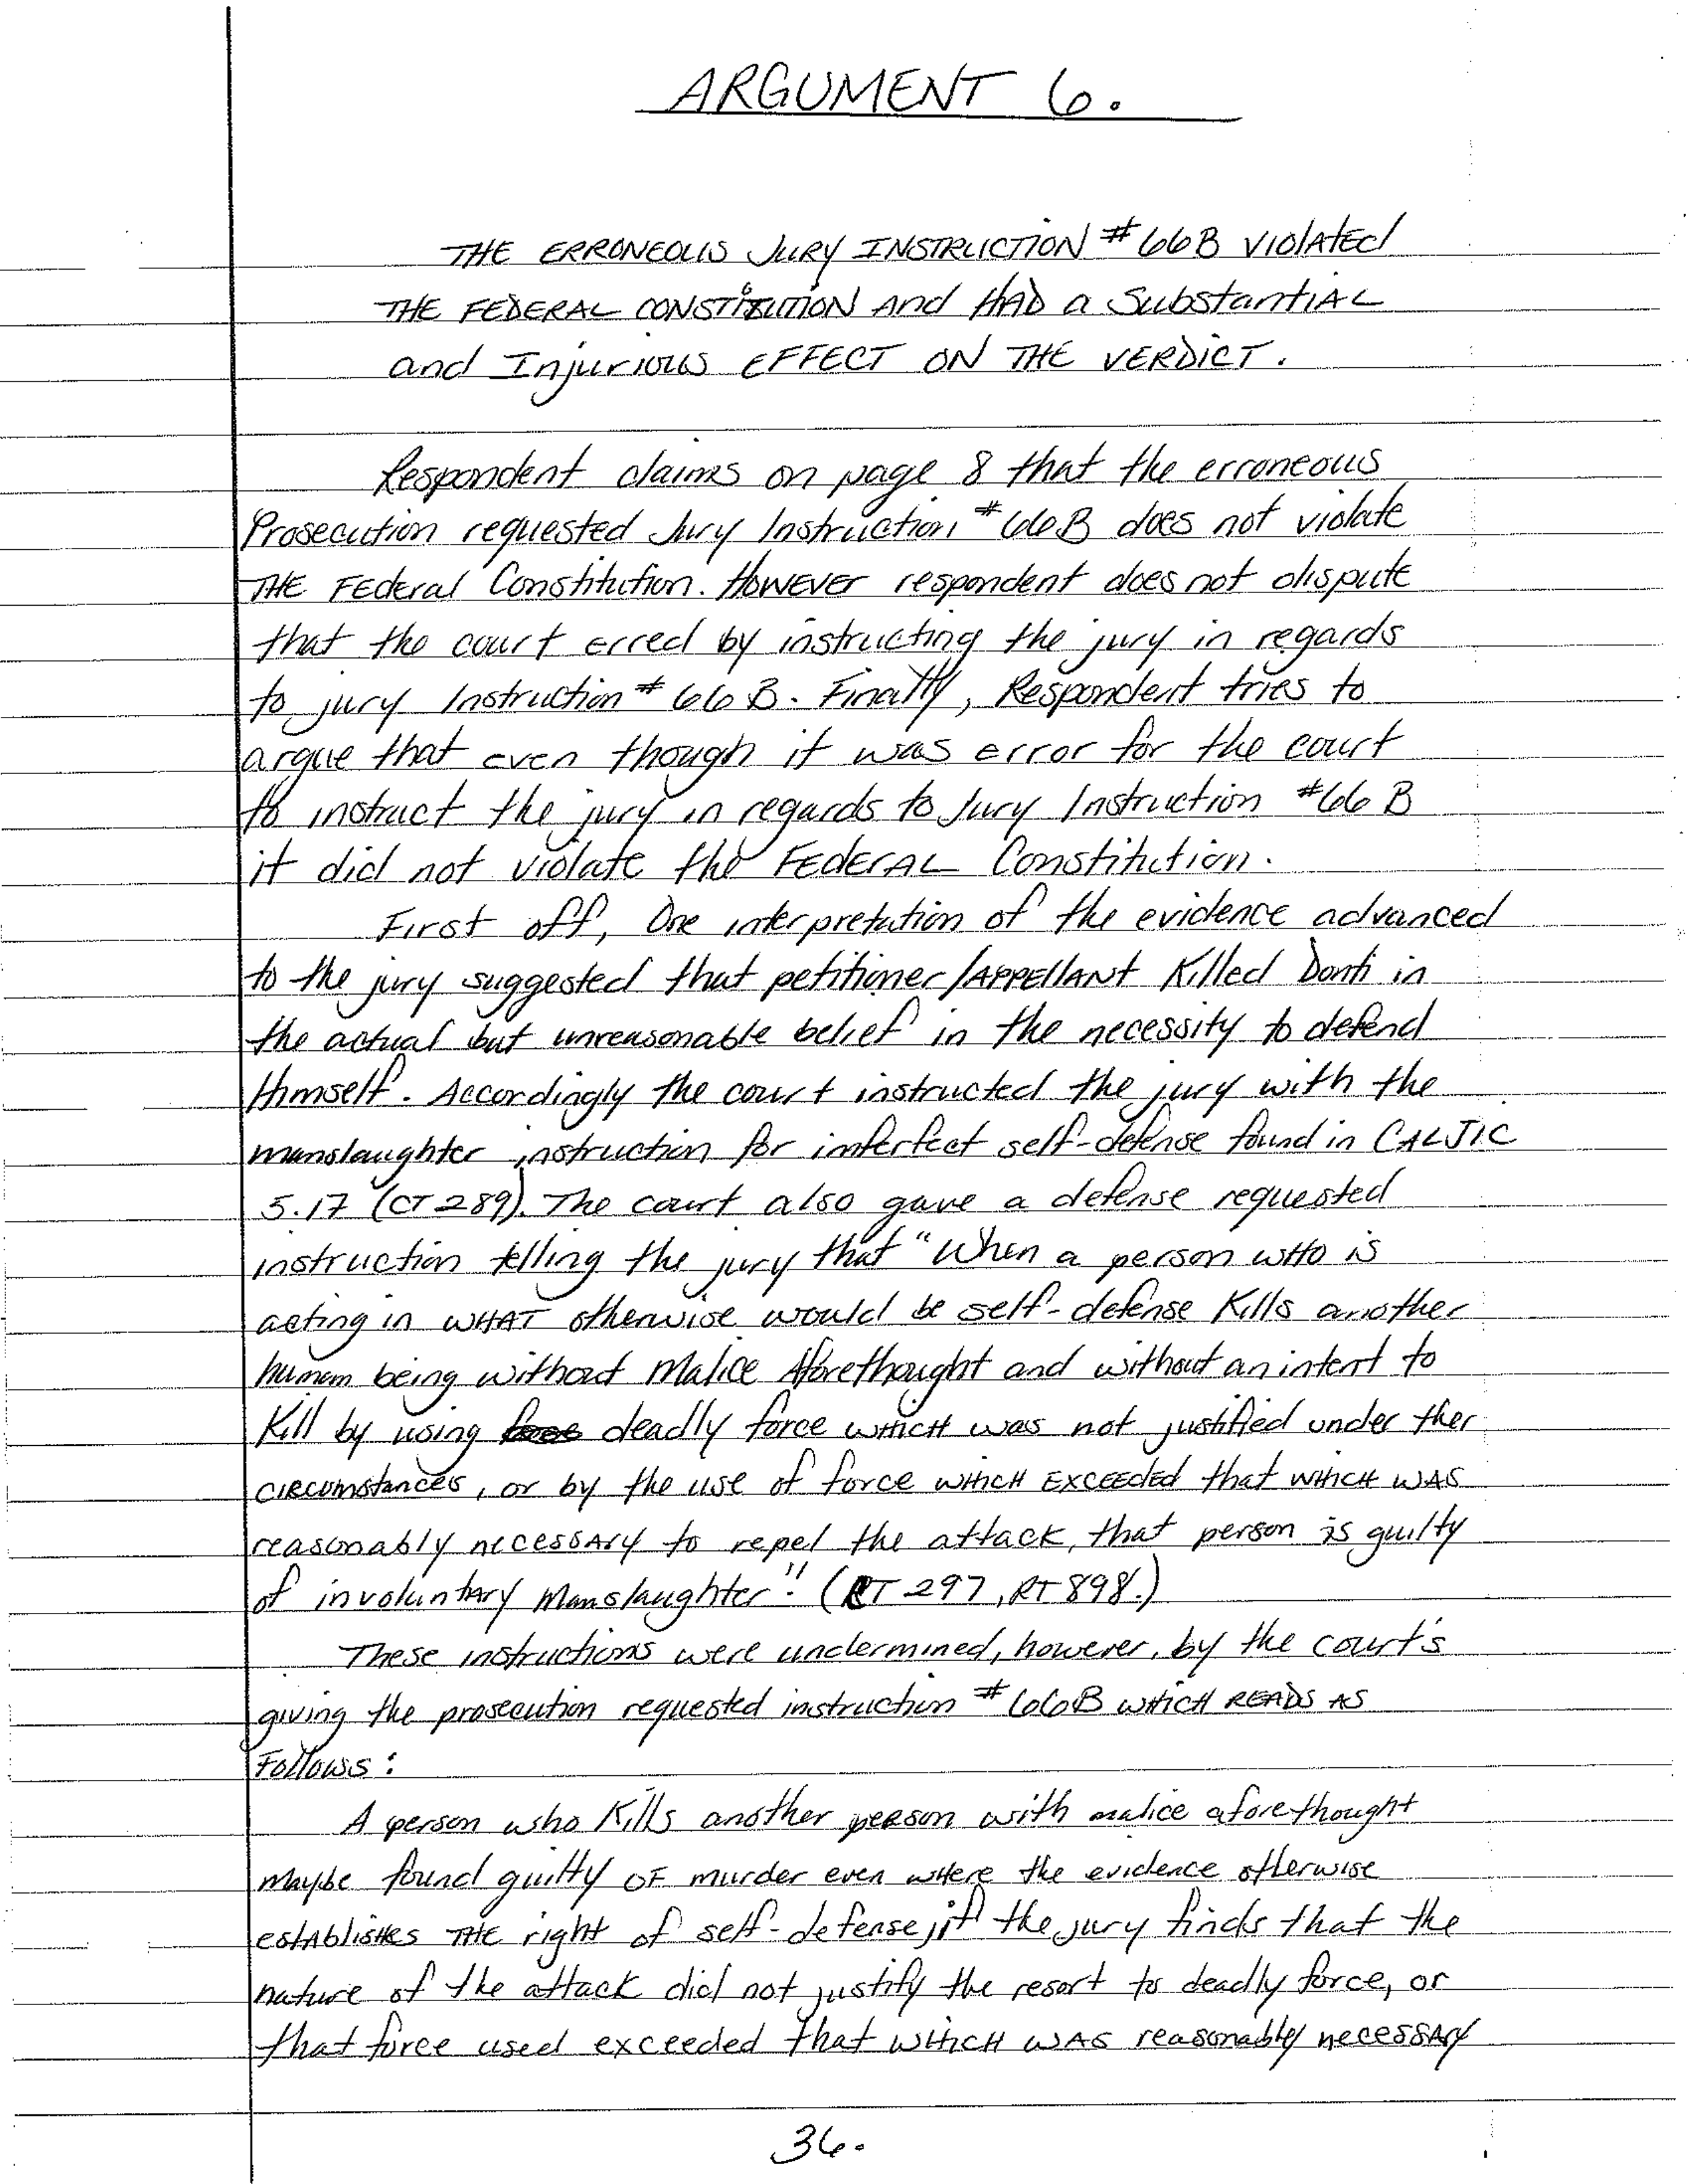 ARGUMENT 6.
THE ERRONEOUS JURY INSTRUCTION #66B VIOLATED
THE FEDERAL CONSTITUTION AND HAD a SubstantiAL
and Injurious EFFECT ON THE VERDICT.
Respondent claims on page 8 that the erroneous
Prosecution requested Jury Instruction #66B does not violate
THE FEderal Constitution. However respondent does not dispute
that the court erred by instructing the jury in regards
to jury Instruction #66B. Finally, Respondent tries to
argue that even though it was error for the court
to instruct the jury in regards to Jury Instruction #66B
it did not violate the FEDERAL Constitution.
First off, One interpretation of the evidence advanced
to the jury suggested that petitioner/APPELLANT Killed Donti in
the actual but unreasonable belief in the necessity to defend
Himself. Accordingly the court instructed the jury with the
manslaughter instruction for imferfect self-defense found in CALJIC
5.17 (CT 289). The court also gave a defense requested
instruction telling the jury that "When a person WHO is
acting in WHAT otherwise would be self-defense Kills another
human being without Malice Aforethought and without an intent to
Kill by using deadly force WHICH was not justified under ther
circumstances, or by the use of force WHICH EXCEEDED that WHICH WAS
reasonably necessary to repel the attack, that person is guilty
of involuntary Manslaughter". (CT 297, RT 898.)
These instructions were undermined, however, by the court's
giving the prosecution requested instruction #66B WHICH READS AS
Follows:
A person who Kills another person with malice aforethought
maybe found guilty OF murder even where the evidence otherwise
establishes THE right of self-defense, if the jury finds that the
nature of the attack did not justify the resort to deadly force, or
that force used exceeded that WHICH WAS reasonably necessary
36.